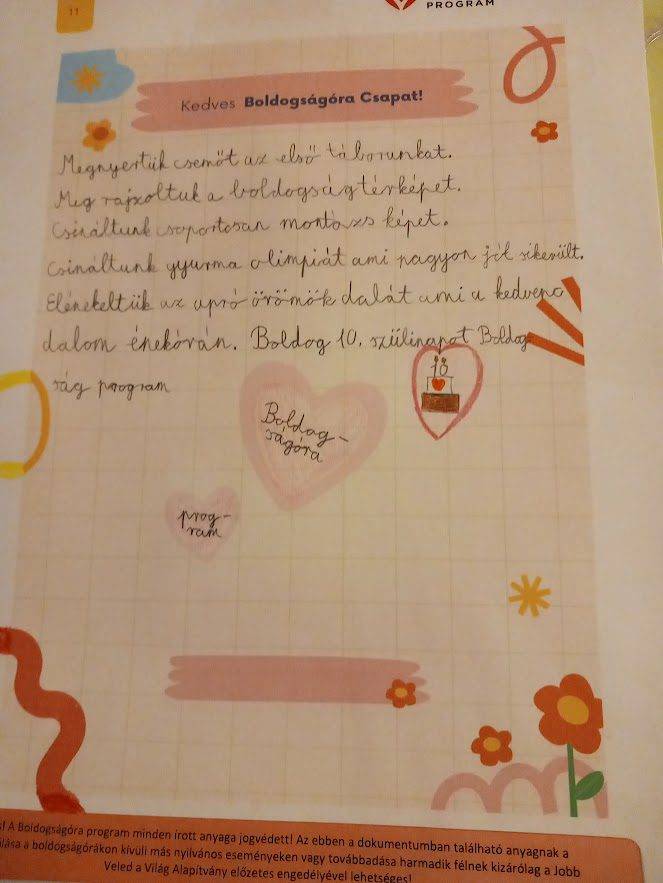 11
PROGRAM
Kedves Boldogságóra Csapat!
Megnyertük csemőt az első táborunkat.
Meg rajzoltuk a boldogságtérképet.
Csináltunk csoportosan montázs képet.
Csináltunk gyurma olimpiát ami nagyon jól sikerült.
Elénekeltük az apró örömök dalát ami a kedvenc
dalom énekórán. Boldog 10. szülinapot Boldog
ság program
10
Boldog-
ságóra
prog-
ram
! A Boldogságóra program minden írott anyaga jogvédett! Az ebben a dokumentumban található anyagnak a
a boldogságórákon kívüli más nyilvános eseményeken vagy továbbadása harmadik félnek kizárólag a Jobb
Veled a Világ Alapítvány előzetes engedélyével lehetséges!